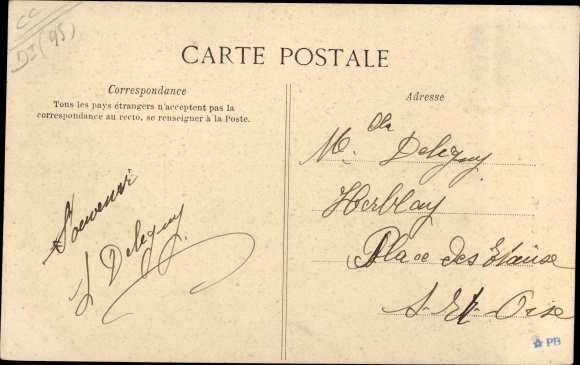 CC
DI (95)
CARTE POSTALE
Correspondance
Tous les pays étrangers n'acceptent pas la
correspondance au recto, se renseigner à la Poste.
Souvenir
L Deleguy
Adresse
Mlle Deleguy
Herblay
Place des
S-Et-Oise
PB